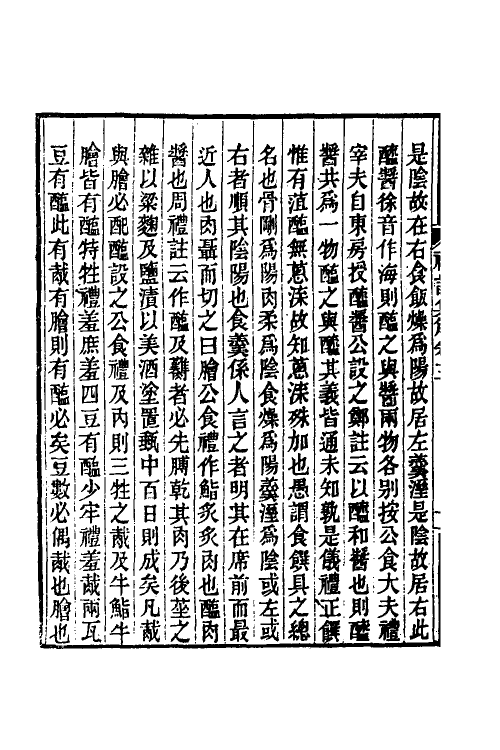 是陰故在右食飯燥爲陽故居左羹溼是陰故居右此
醯醬徐音作海則醯之與醬兩物各别按公食大夫禮
宰夫自東房授醯醬公設之鄭註云以醯和醬也則醯
醬共爲一物醯之與醢其義皆通未知孰是儀禮正饌
惟有菹醢無蔥渫故知蔥渫殊加也愚謂食饌具之總
名也骨剛爲陽肉柔爲陰食燥爲陽羹溼爲陰或左或
右者順其陰陽也食羹係人言之者明其在席前而最
近人也肉聶而切之曰膾公食禮作鮨炙炙肉也醢肉
醬也周禮註云作醢及臡者必先膊乾其肉乃後莝之
雜以粱麴及鹽漬以美酒塗置甀中百日則成矣凡胾
與膾必配醢設之公食禮及內則三牲之胾及牛鮨牛
膾皆有醢特牲禮羞庶羞四豆有醢少牢禮羞胾兩瓦
豆有醢此有胾有膾則有醢必矣豆數必偶胾也膾也